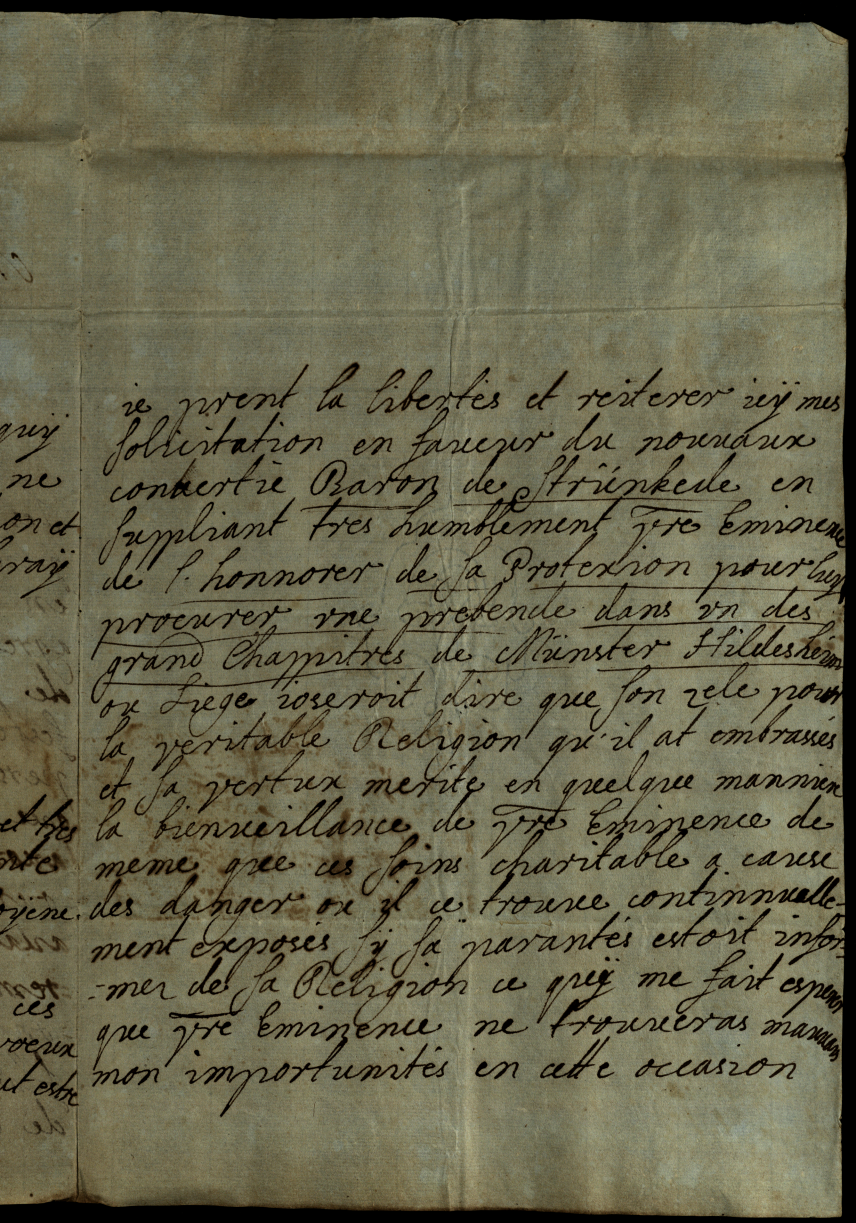 ie prent la libertés et reiterer icÿ mes
solicitation en faveur du nouvaux
convertie Baron de Strünkede en
suppliant tres humblement vre Eminence
de l'honnorer de sa Protexion pour luy
procurer vne prebende dans vn des
grand Chappitres de Münster Hildesheim
ou Liege ioseroit dire que son zele pour
la veritable Religion qu'il at embrassés
et sa vertux merite en quelque manniere
la bienveillance de vre Eminence de
meme que ces soins charitable a cause
des danger ou il ce trouve continnuelle-
ment exposés sÿ sa parantés estoit infor-
-mer de sa Religion ce quÿ me fait esperer
que vre Eminence ne trouveras mauvais
mon importunités en cette occasion
quÿ
ne
on et
vraÿ
et tres
oÿene
ces
voeux
ut estre